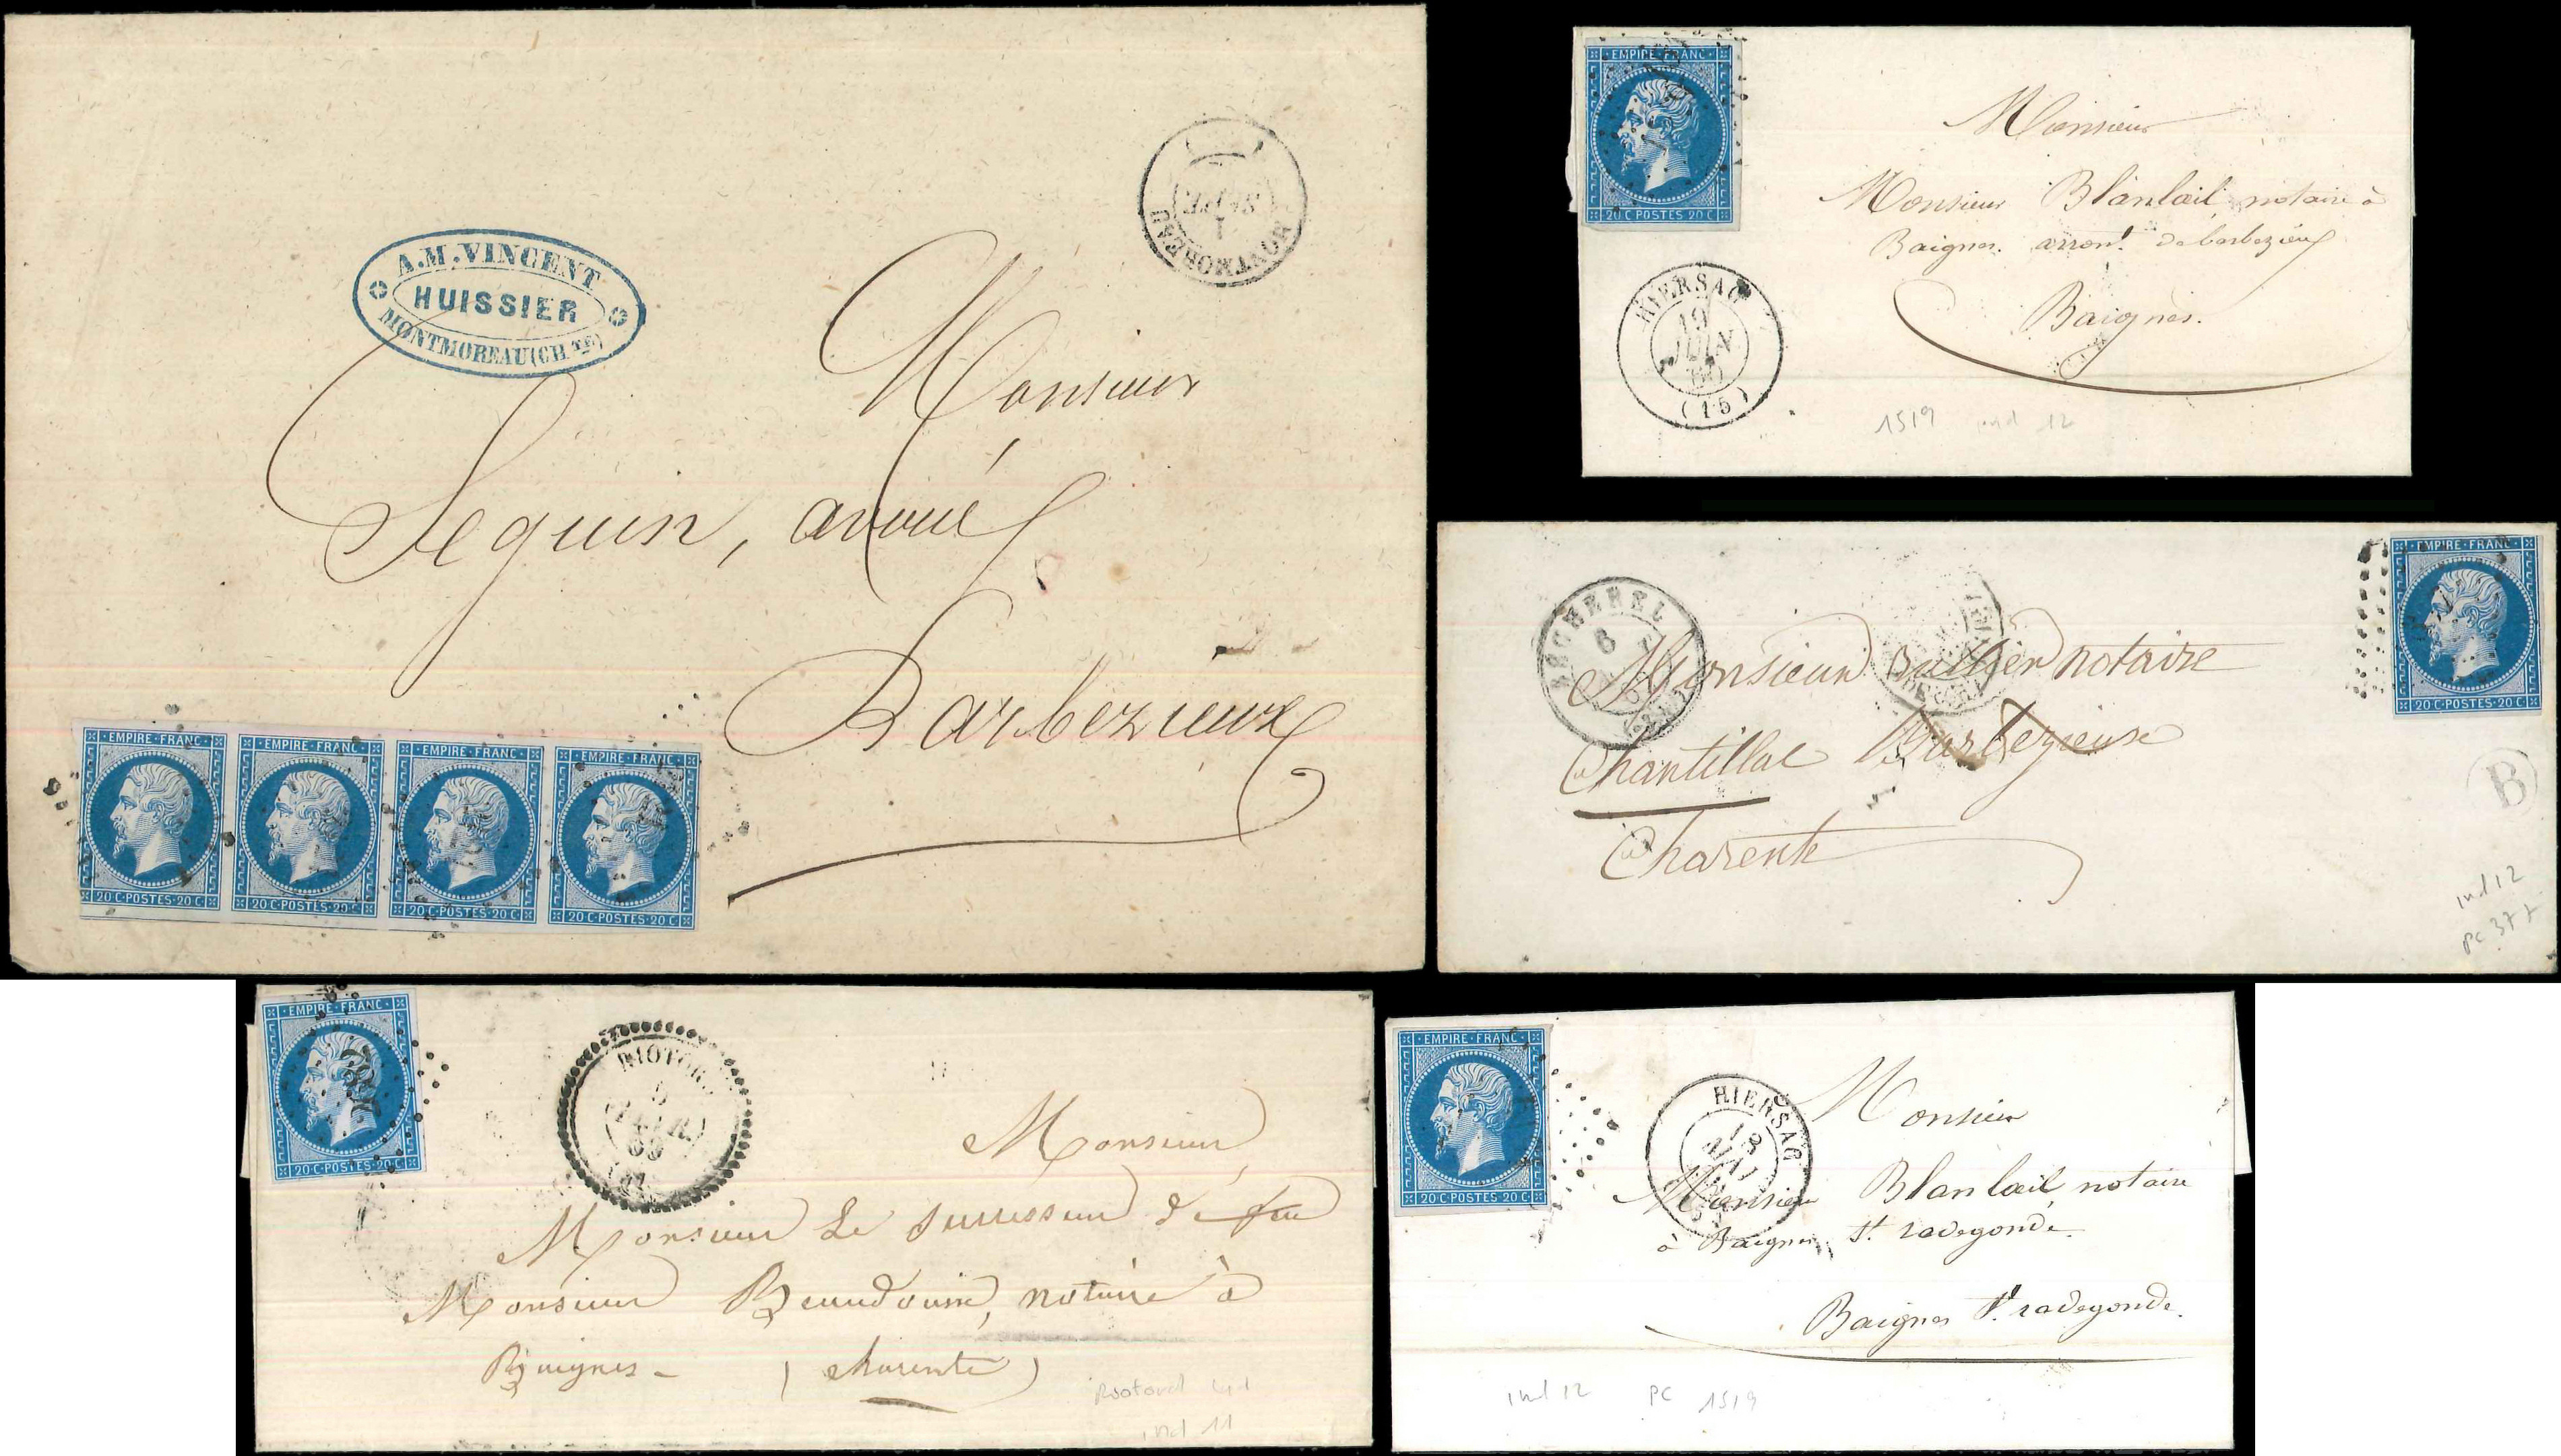 A.M. VINCENT
HUISSIER
MONTMOREAU (CH.TE)
MONTMOREAU
1
SEPT
Monsieur
Seguin, avoué
Barbezieux
EMPIRE·FRANC· EMPIRE·FRANC· EMPIRE·FRANC· EMPIRE·FRANC·
20 C·POSTES·20 C· 20 C·POSTES·20 C· 20 C·POSTES·20 C· 20 C·POSTES·20 C·
EMPIRE·FRANC·
20 C·POSTES·20 C·
Monsieur
Monsieur Blanlœil, notaire à
Baignes. arront. de barbezieux
Baignes.
HIERSAC
19
JUIN
60
(15)
1519 ind 12
EMPIRE·FRANC·
20 C·POSTES·20 C·
6
Monsieur notaire
Chantillac Barbezieux
Charente
B
ind 12
pc 377
EMPIRE·FRANC·
20 C·POSTES·20 C·
Monsieur
Monsieur Le successeur de feu
Monsieur notaire à
Baignes - (charente)
ind 11
EMPIRE·FRANC·
20 C·POSTES·20 C·
HIERSAC
18
MAI
Monsieur
Monsieur Blanlœil notaire
à Baignes St. radegonde.
Baignes St. radegonde.
ind 12 PC 1519